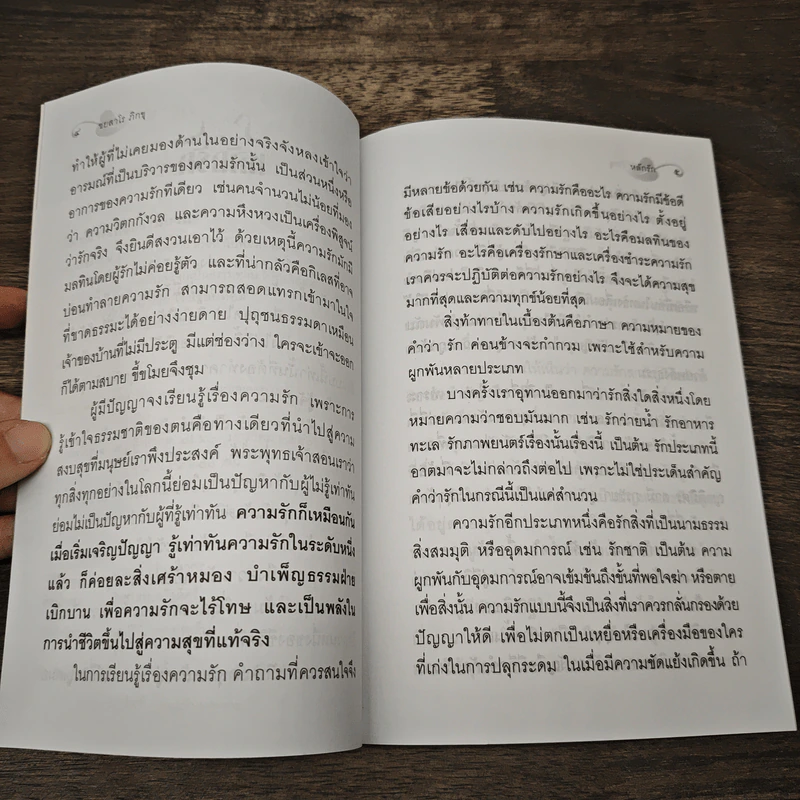 ๔ ชยสาโร ภิกขุ
ทำให้ผู้ที่ไม่เคยมองด้านในอย่างจริงจังหลงเข้าใจว่า
อารมณ์ที่เป็นบริวารของความรักนั้น เป็นส่วนหนึ่งหรือ
อาการของความรักทีเดียว เช่นคนจำนวนไม่น้อยที่มอง
ว่า ความวิตกกังวล และความหึงหวงเป็นเครื่องพิสูจน์
ว่ารักจริง จึงยินดีสงวนเอาไว้ ด้วยเหตุนี้ความรักมักมี
มลทินโดยผู้รักไม่ค่อยรู้ตัว และที่น่ากลัวคือกิเลสที่อาจ
บ่อนทำลายความรัก สามารถสอดแทรกเข้ามาในใจ
ที่ขาดธรรมะได้อย่างง่ายดาย ปุถุชนธรรมดาเหมือน
เจ้าของบ้านที่ไม่มีประตู มีแต่ช่องว่าง ใครจะเข้าจะออก
ก็ได้ตามสบาย ขี้ขโมยจึงชุม
ผู้มีปัญญาจงเรียนรู้เรื่องความรัก เพราะการ
รู้เข้าใจธรรมชาติของตนคือทางเดียวที่นำไปสู่ความ
สงบสุขที่มนุษย์เราพึงประสงค์ พระพุทธเจ้าสอนเราว่า
ทุกสิ่งทุกอย่างในโลกนี้ย่อมเป็นปัญหากับผู้ไม่รู้เท่าทัน
ย่อมไม่เป็นปัญหากับผู้ที่รู้เท่าทัน ความรักก็เหมือนกัน
เมื่อเริ่มเจริญปัญญา รู้เท่าทันความรักในระดับหนึ่ง
แล้ว ก็ค่อยละสิ่งเศร้าหมอง บำเพ็ญธรรมฝ่าย
เบิกบาน เพื่อความรักจะไร้โทษ และเป็นพลังใน
การนำชีวิตขึ้นไปสู่ความสุขที่แท้จริง
ในการเรียนรู้เรื่องความรัก คำถามที่ควรสนใจจึง
หลักรัก
มีหลายข้อด้วยกัน เช่น ความรักคืออะไร ความรักมีข้อดี
ข้อเสียอย่างไรบ้าง ความรักเกิดขึ้นอย่างไร ตั้งอยู่
อย่างไร เสื่อมและดับไปอย่างไร อะไรคือมลทินของ
ความรัก อะไรคือเครื่องรักษาและเครื่องชำระความรัก
เราควรจะปฏิบัติต่อความรักอย่างไร จึงจะได้ความสุข
มากที่สุดและความทุกข์น้อยที่สุด
สิ่งท้าทายในเบื้องต้นคือภาษา ความหมายของ
คำว่า รัก ค่อนข้างจะกำกวม เพราะใช้สำหรับความ
ผูกพันหลายประเภท
บางครั้งเราอุทานออกมาว่ารักสิ่งใดสิ่งหนึ่งโดย
หมายความว่าชอบมันมาก เช่น รักว่ายน้ำ รักอาหาร
ทะเล รักภาพยนตร์เรื่องนั้นเรื่องนี้ เป็นต้น รักประเภทนี้
อาตมาจะไม่กล่าวถึงต่อไป เพราะไม่ใช่ประเด็นสำคัญ
คำว่ารักในกรณีนี้เป็นแค่สำนวน
ความรักอีกประเภทหนึ่งคือรักสิ่งที่เป็นนามธรรม
สิ่งสมมุติ หรืออุดมการณ์ เช่น รักชาติ เป็นต้น ความ
ผูกพันกับอุดมการณ์อาจเข้มข้นถึงขั้นที่พอใจฆ่า หรือตาย
เพื่อสิ่งนั้น ความรักแบบนี้จึงเป็นสิ่งที่เราควรกลั่นกรองด้วย
ปัญญาให้ดี เพื่อไม่ตกเป็นเหยื่อหรือเครื่องมือของใคร
ที่เก่งในการปลุกระดม ในเมื่อมีความขัดแย้งเกิดขึ้น ถ้า